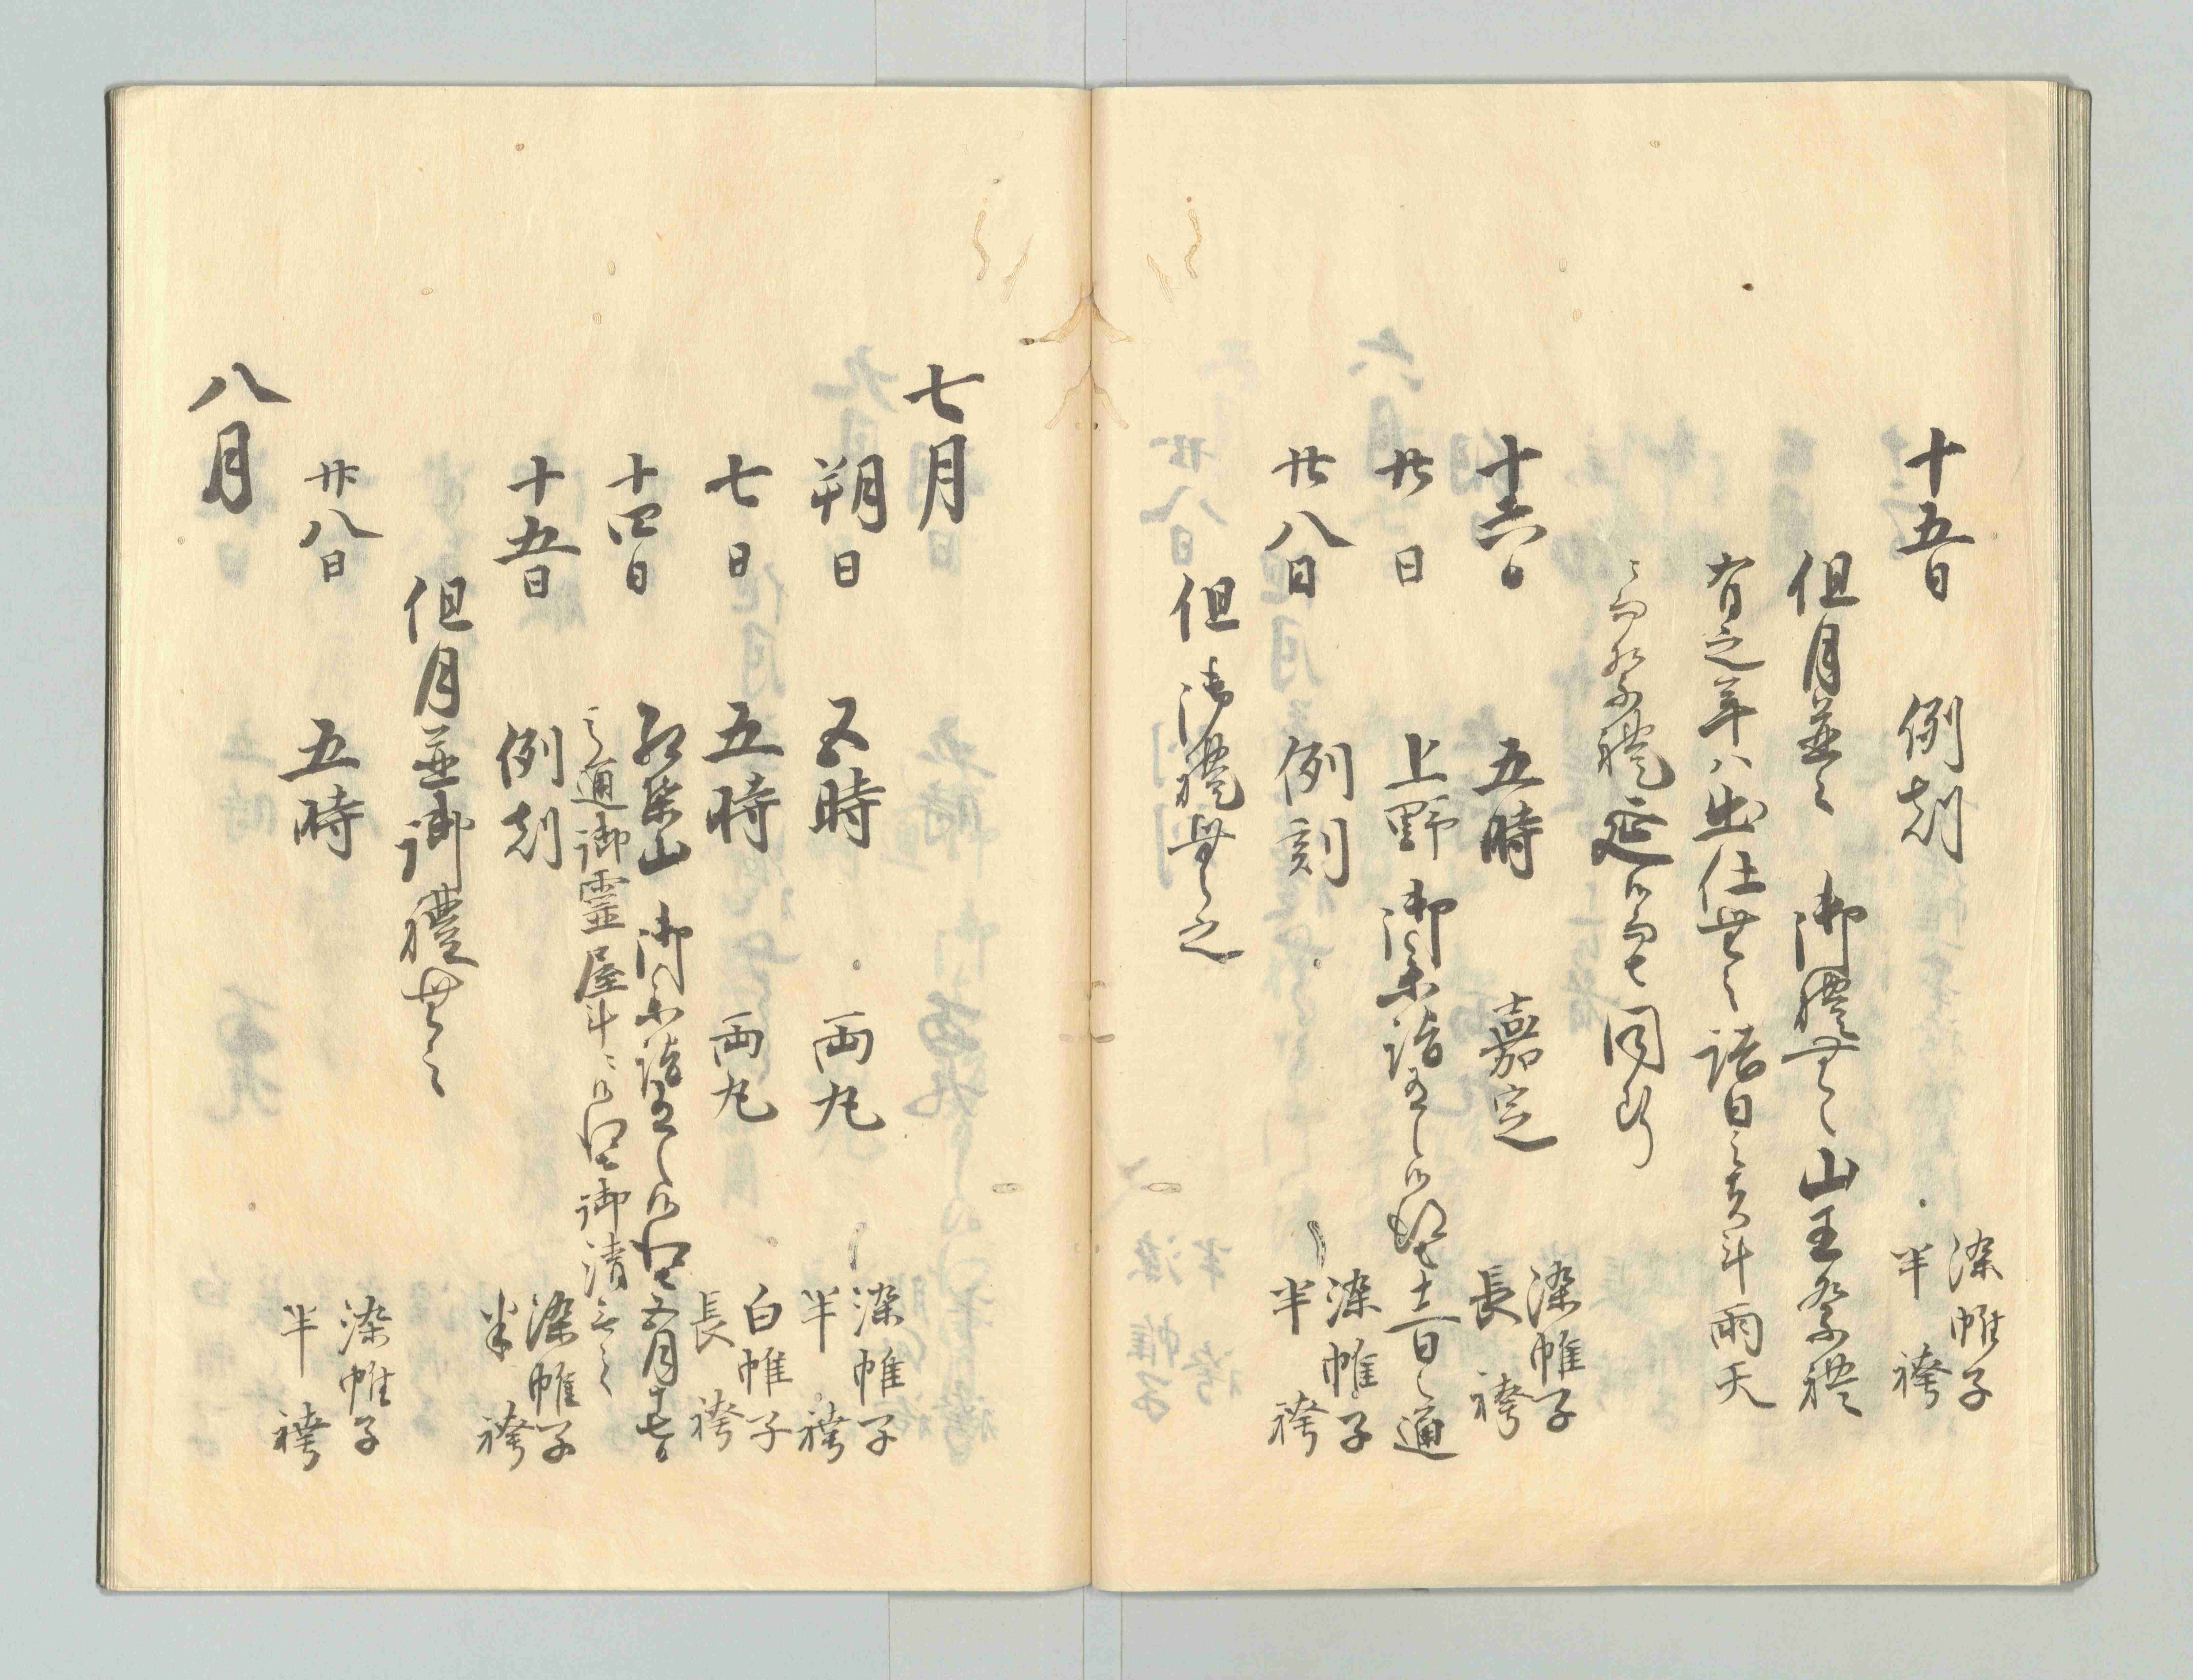 十五日 例刻 染帷子 半袴
但月並之 御禮無之山王祭禮
有之年ハ出仕無之諸日之方斗雨天
ニ而祭禮延候而も同断
十六日 五時 嘉定 染帷子 長袴
廿日 上野 御参詣有之候得者十二日之通
廿八日 例刻 染帷子 半袴
但御禮無之
七月
朔日 五時 両丸 染帷子 半袴
七日 五時 両丸 白帷子 長袴
十四日 紅葉山 御参詣有之候得者五月十七日
之通御霊屋斗ニ候得者御清無之
十五日 例刻 染帷子 半袴
但月並御禮無之
廿八日 五時 染帷子 半袴
八月